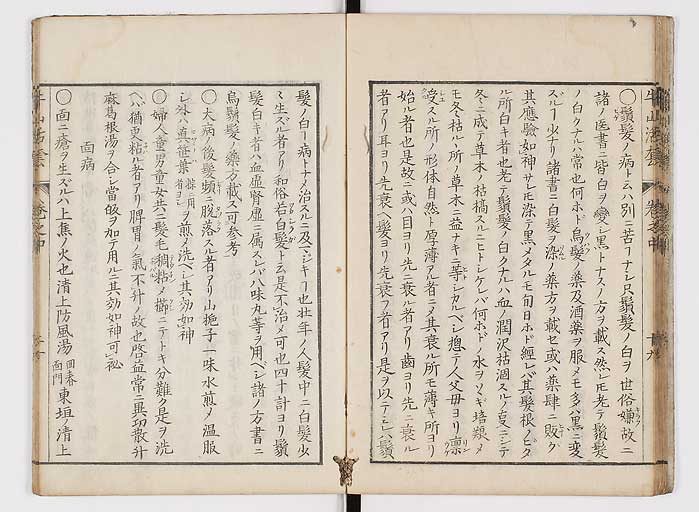 〇鬚髮ノ病ト云ハ別ニ苦ナシ只鬚髮ノ白ヲ世俗嫌故ニ
諸ノ医書ニ皆白ヲ變シ黒トナスノ方ヲ載ス然レ𪜈老テ鬚髮
ノ白クナルハ常也何ホド烏髮ノ藥及酒藥ヲ服メモ多ハ黒ニ変
スルー少ナリ諸書ニ白髮ヲ染ル藥方ヲ載セ或ハ藥肆ニ販グ
其應驗如神サレ𪜈染テ黒メタルモ旬日ホド經レバ其髮根ノビタ
ル所白キ者也老テ鬚髮ノ白クナルハ血ノ潤沢枯涸スルノ㚑ニシテ
冬ニ成テ草木ノ枯槁スルニヒトシケレバ何ホドノ水ヲソヽギ培糞メ
モ冬枯ル所ノ草木ニ益ナキニ等シカルベシ惣テ人父母ヨリ稟
受スル所ノ形体自然ト厚薄アル者ニメ其衰ル所モ薄キ所ヨリ
始ル者也是故ニ或ハ目ヨリ先ニ衰ル者アリ齒ヨリ先ニ衰ル
者アリ耳ヨリ先衰ヘ髮ヨリ先衰フ者アリ是ヲ以テミレバ鬚
髮ノ白ー病トナメ治スルニ及ベジキー也壮年ノ人髮中ニ白髮少
ミ生ズル者アリ和俗若白髮ト云是不治メ可也四十計ヨリ鬚
髮白キ者ハ血虚腎虚ニ属スレバ八味丸等ヲ用ベシ諸ノ方書ニ
烏鬚髮ノ藥方載ス可参考
〇大病ノ後髮頻ニ脱落スル者アリ山梔子一味水煎メ温服
シ外ハ真菰葉ヲ煎メ洗ベシ其効如神
〇婦人童男童女共ニ髮毛稠粘メ櫛ニテトキ分難ク是ヲ洗
ヘバ猶更粘ル者アリ脾胃ノ氣不升ノ故也啓益常ニ異功散升
麻葛根湯ヲ合シ當皈ヲ加テ用ルニ其効如神可秘
面病
〇面ニ瘡ヲ生ズルハ上焦ノ火也清上防風湯 回春面門 東垣ノ清上